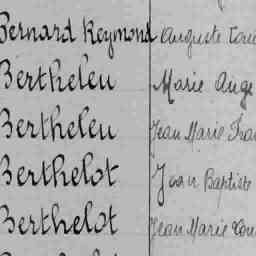 Bernard Reymond Auguste
Bertheleu Marie Ange
Bertheleu Jean Marie
Berthelot Jean Baptiste
Berthelot Jean Marie